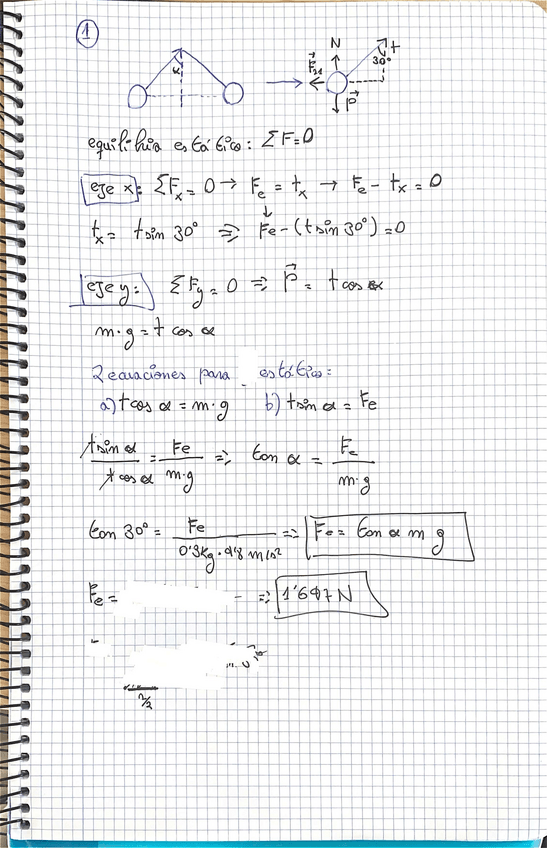 1
α N t
30°
F⃗21
P⃗
equilibrio estático: ΣF=0
eje x: ΣFx = 0 → Fe = tx → Fe - tx = 0
tx = t sin 30° => Fe - (t sin 30°) = 0
eje y: ΣFy = 0 => P⃗ = t cos α
m·g = t cos α
2 ecuaciones para estático:
a) t cos α = m·g b) t sin α = Fe
t sin α / t cos α = Fe / m·g => tan α = Fe / m·g
tan 30° = Fe / 0'3kg · 9'8 m/s² => Fe = tan α m g
Fe = - => 1'697 N